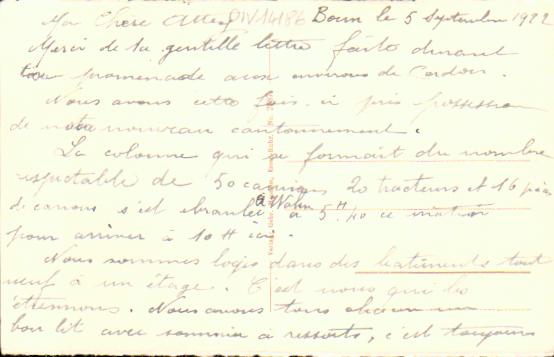 Ma Chère DIV14186 Bonn le 5 Septembre 1922
Merci de ta gentille lettre faite durant
ta promenade aux environs de
Nous avons cette fois-ci pris possession
de notre nouveau cantonnement.
La colonne qui se formait du nombre
respectable de 50 camions 20 tracteurs et 16 pièces
de canons s'est ébranlée à Wahn à 5H40 ce matin
pour arriver à 10H ici.
Nous sommes logés dans des batiments tout
neuf à un étage. C'est nous qui les
étrennons. Nous avons tous chacun un
bon lit avec sommier à ressorts, c'est toujours